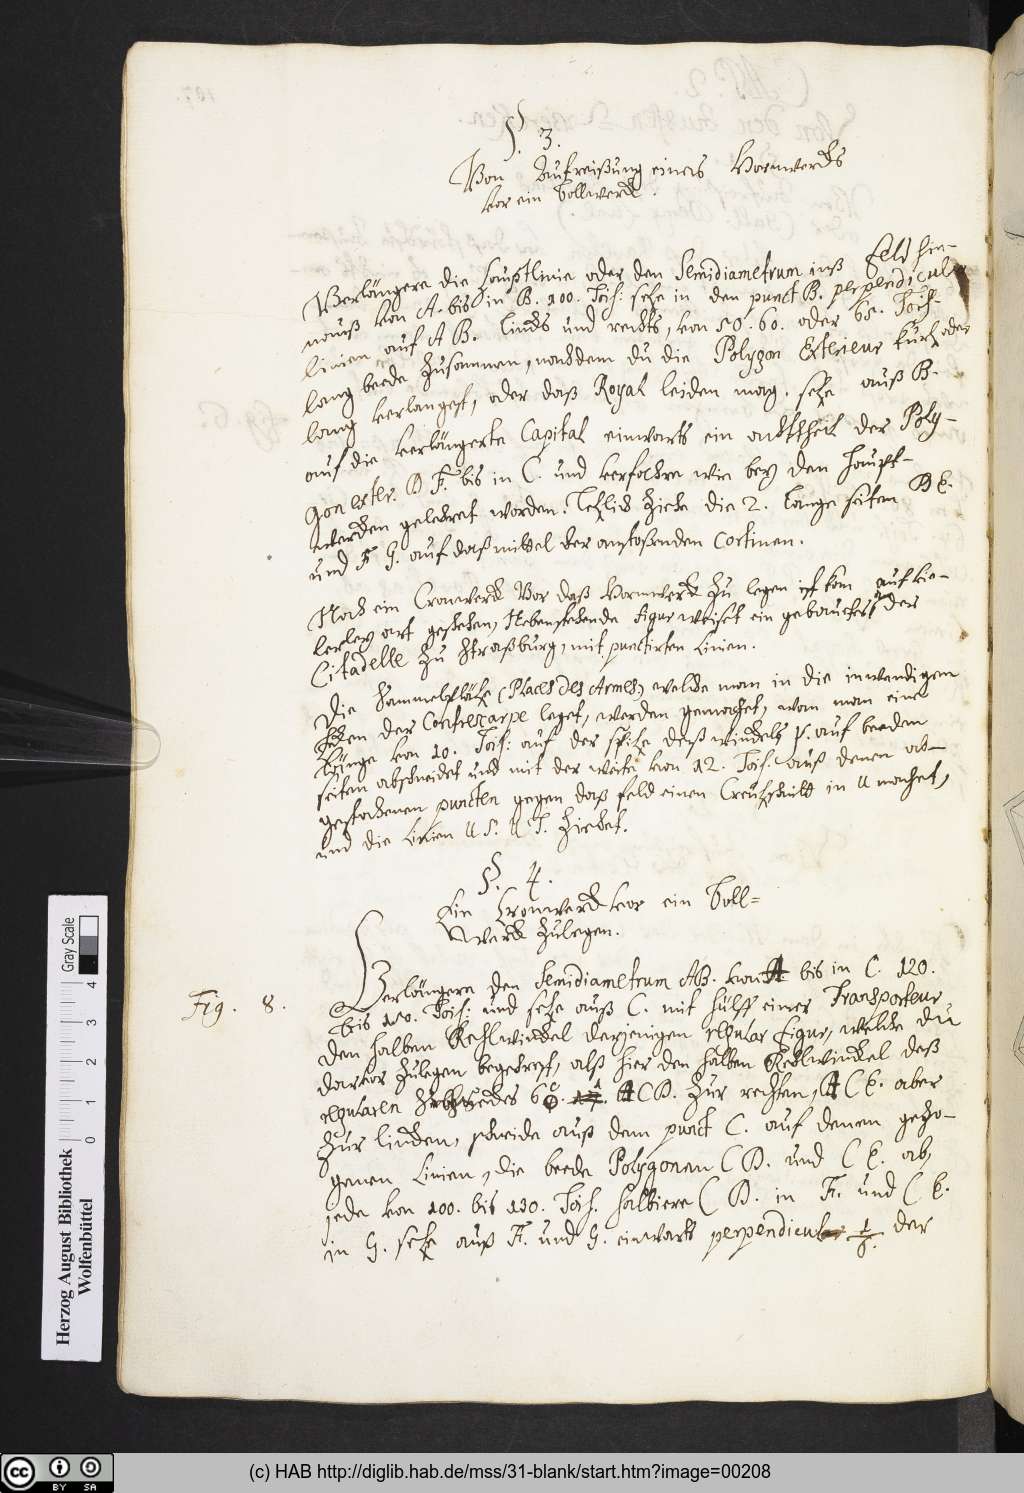 §. 3.
Von Aufreißung eines Hornwercks
vor ein Bollwerck.
Verlängere die Haubtlinie oder den Semidiametrum inß Feld hin-
nauß von A. bis in B. 100. Tois: setze in den punct B. perpendicular
Linien auf A B. lincks und rechts, von 50. 60. oder 65. Tois.
lang beede zusammen, nachdem du die Polygon Exterieur kurtz oder
lang verlangest, oder daß Royal leiden mag. setze auß B.
auf die verlängerte Capital einwarts ein achttheil der Poly-
gon exter. D F. bis in C. und verfahre wie bey den Haupt-
wercken gelehret worden. Letzlich ziehe die 2. lange seiten D E.
und F G. auf daß mittel der anstoßenden Cortinen.
Noch ein Cronwerck vor daß Hornwerck zu legen ist kan auf vie-
lerley art geschehen, Nebenstehende Figur weiset ein gebrauchtes der
Citadelle zu Straßburg, mit punctirten Linien.
Die Sammelplätze (Places des Armes) welche man in die inwendigen
Ecken der Contrescarpe leget, werden gemachet, wan man eine
Länge von 10. Tois: auf der spitze deß winckels P. auf beeden
seiten abschneidet und mit der weite von 12. Tois. auß denen ab-
gestochenen puncten gegen daß feld einen Creutzschnitt in U machet,
und die Linien U S. U T. ziehet.
§. 4.
Ein Cronwerck vor ein Boll=
werck zulegen.
Fig. 8.
Verlängere den Semidiametrum AB. von A bis in C. 120.
bis 150. Tois: und setze auß C. mit hülff eines Transporteur
den halben Kehlwinckel derjenigen regular Figur, welche du
darvor zulegen begehrest, alß hier den halben Kehlwinckel deß
regularen 60. A C D. zur rechten, A C E. aber
zur lincken, schneide auß dem punct C. auf denen gezo-
genen Linien, die beede Polygonen C D. und C E. ab,
jede von 100. bis 130. Tois. halbiere C D. in F. und C E.
in G. setze auß F. und G. einwarts perpendicular 1/8. der
Gray Scale
0 1 2 3 4
Herzog August Bibliothek
Wolfenbüttel
BY SA
(c) HAB http://diglib.hab.de/mss/31-blank/start.htm?image=00208